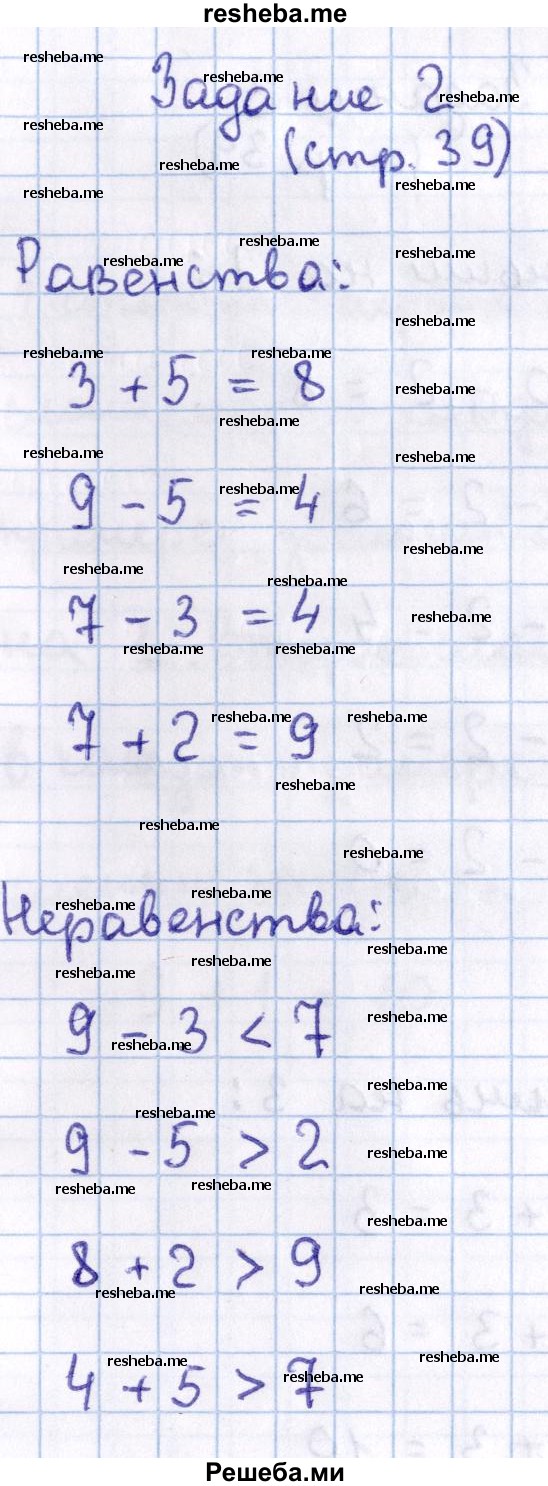 resheba.me
Задание 2
(стр. 39)
Равенства:
3 + 5 = 8
9 - 5 = 4
7 - 3 = 4
7 + 2 = 9
Неравенства:
9 - 3 < 7
9 - 5 > 2
8 + 2 > 9
4 + 5 > 7
Решеба.ми